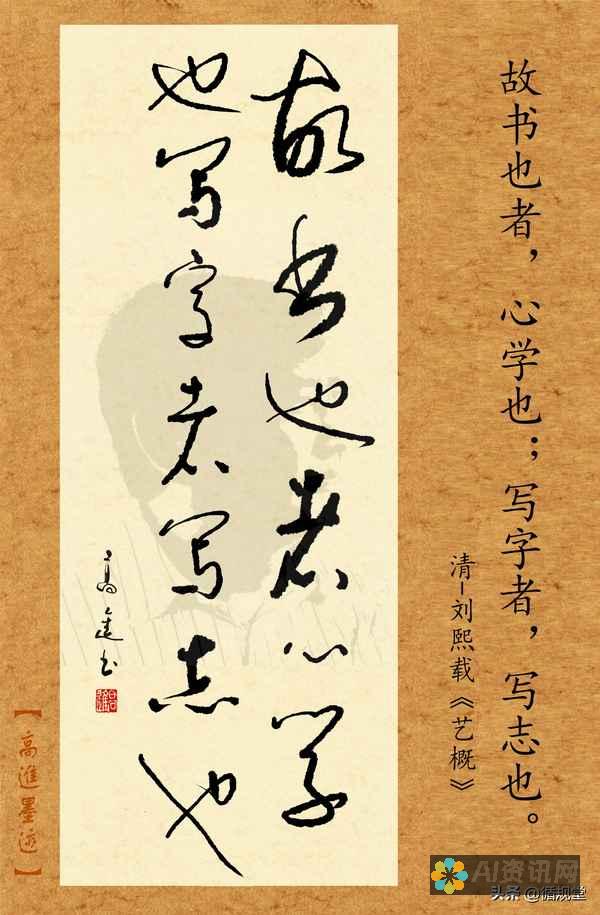 故书也者，心学也；写字者，写志也。
清-刘熙载《艺概》
故书也者心学
也写字者写志也
高进书
【高進墨迹】
AI资讯网
头条 @循规堂